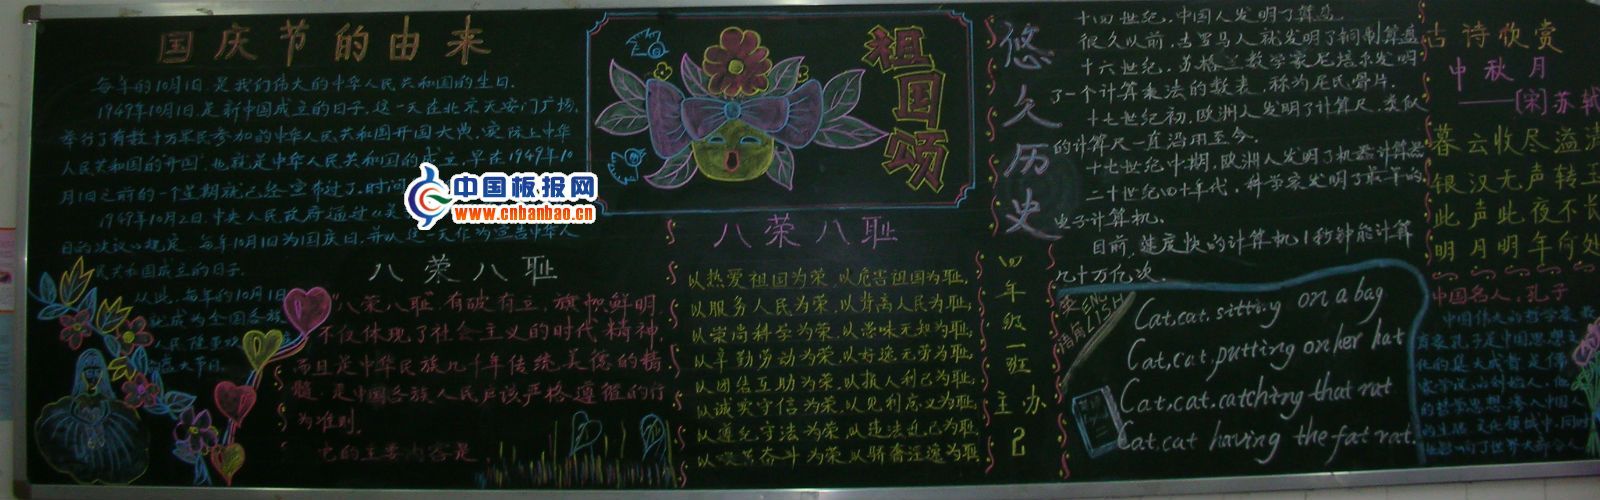 国庆节的由来
每年的10月1日,是我们伟大的中华人民共和国的生日.
1949年10月1日,是新中国成立的日子.这一天在北京天安门广场,
举行了有数十万军民参加的中华人民共和国开国大典.实际上中华
人民共和国的"开国"也就是中华人民共和国的成立,早在1949年10
月1日之前的一个星期就已经宣布过了.时间
1949年10月2日,中央人民政府通过《关
日的决议》规定,每年10月1日为国庆日,并以这一天作为宣告中华人
民共和国成立的日子.
从此,每年的10月1日
就成为全国各族
人民隆重欢
大节日.
中国板报网
www.cnbanbao.cn
祖国颂
八荣八耻
"八荣八耻"有破有立,旗帜鲜明,
不仅体现了社会主义的时代精神,
而且是中华民族几千年传统美德的精
髓,是中国各族人民应该严格遵循的行
为准则.
它的主要内容是
八荣八耻
以热爱祖国为荣,以危害祖国为耻;
以服务人民为荣,以背离人民为耻;
以崇尚科学为荣,以愚昧无知为耻;
以辛勤劳动为荣,以好逸无劳为耻;
以团结互助为荣,以损人利己为耻;
以诚实守信为荣,以见利忘义为耻;
以遵纪守法为荣,以违法乱己为耻;
以艰苦奋斗为荣,以骄奢淫逸为耻
四年级一班主办
2
悠久历史
十四世纪,中国人发明了算盘.
很久以前,古罗马人就发明了铜制算盘
十六世纪,苏格兰数学家尼培尔发明
了一个计算乘法的数表,称为尼氏骨片.
十七世纪初,欧洲人发明了计算尺,类似
的计算尺一直沿用至今.
十七世纪中期,欧洲人发明了机器计算器
二十世纪四十年代,科学家发明了最早的
电子计算机.
目前,速度快的计算机1秒钟能计算
几十万亿次.
英ENG
语LISH
Cat,cat,sitting on a bag
Cat,cat,putting on her hat
Cat,cat,catching that rat
Cat,cat having the fat rat.
古诗欣赏
中秋月
——[宋]苏轼
暮云收尽溢清
银汉无声转玉
此声此夜不长
明月明年何处
中国名人:孔子
中国伟大的哲学家,教
育家孔子是中国思想文
化的集大成者,是儒
家学说的创始人.他
的哲学思想渗入中国人
的生活,文化领域中,同时
也影响了世界大部分人